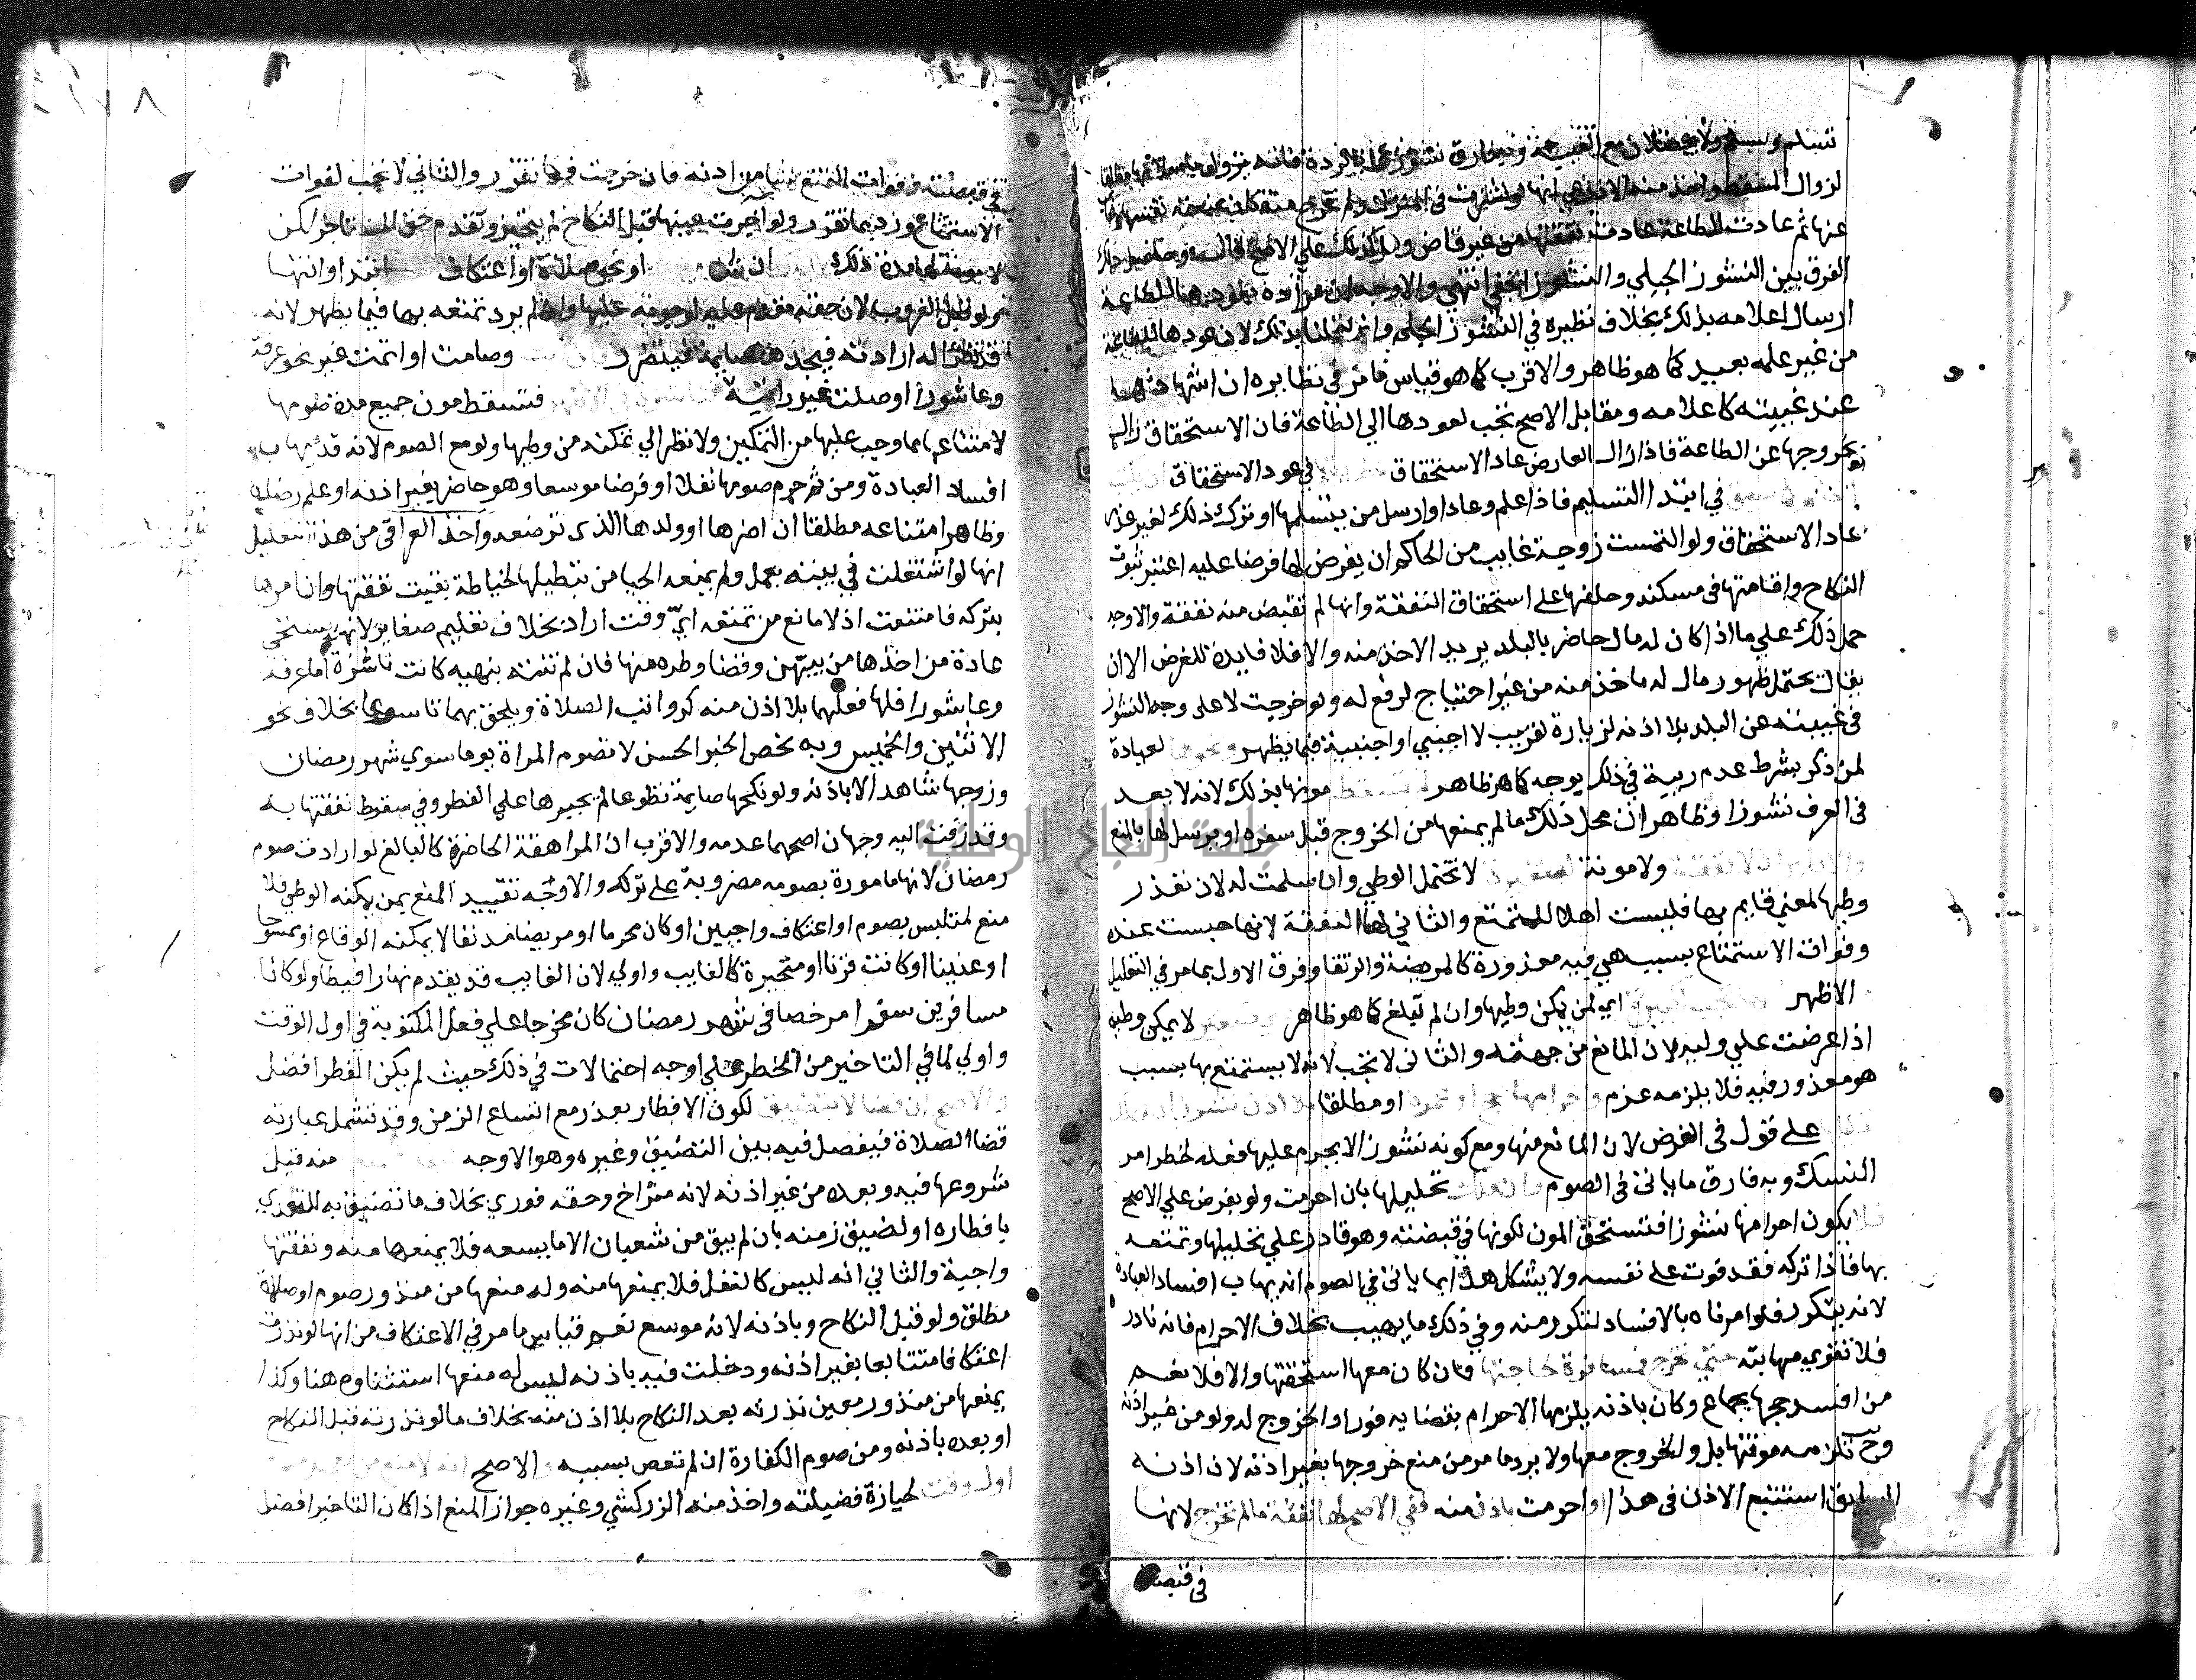 لزوال المسقط واخذ منه الاذرعي انها لو نشزت في المنزل ولم تخرج منه كان منعته نفسها
عنها ثم عادت للطاعة عادت نفقتها من غير قاض وهو كذلك على الاصح قال وحاصل ذلك
الفرق بين النشوز الجلي والنشوز الخفي انتهى والاوجه ان مراده بعودها للطاعة
ارسال اعلامه بذلك بخلاف نظيره في النشوز الجلي وانما قلنا بذلك لان عودها للطاعة
من غير علمه بعيد كما هو ظاهر والاقرب كما هو قياس ما مر في نظايره ان اشهادها
عند غيبته كاعلامه ومقابل الاصح تجب لعودها الي الطاعة فان الاستحقاق زال
بخروجها عن الطاعة فاذا زال العارض عاد الاستحقاق في عود الاستحقاق
في ابتدا التسليم فاذا علم وعاد او ارسل من يتسلمها او ترك ذلك لغير عذر
عاد الاستحقاق ولو التمست زوجة غايب من الحاكم ان يفرض لها فرضا عليه اعتبر ثبوت
النكاح واقامتها في مسكنه وحلفها على استحقاق النفقة وانها لم تقبض منه نفقة والاوجه
حمل ذلك علي ما اذا كان له مال حاضر بالبلد يريد الاخذ منه والا فلا فايدة للفرض الا ان
يقال يحتمل ظهور مال له ماخذ منه من غير احتياج لرفع له ولو خرجت لا على وجه النشوز
في غيبته عن البلد بلا اذنه لزيارة لقريب لا اجنبي او اجنبية فيما يظهر لعيادة
لمن ذكر بشرط عدم ريبة في ذلك بوجه كما هو ظاهر مونها بذلك لانه لا يعد
في العرف نشوزا وظاهر ان محل ذلك ما لم يمنعها من الخروج قبل سفره او يرسل لها بالمنع
ولا مونة لا تحتمل الوطي وان سلمت له لان تعذر
وطيها لمعني قايم بها فليست اهلا للتمتع والثاني لها النفقة لانها حبست عنده
وفوات الاستمتاع بسبب هي فيه معذورة كالمريضة والرتقا وفرق الاول بما مر في التعليل
الاظهر اي لمن يمكن وطيها وان لم تبلغ كما هو ظاهر لا يمكن وطيه
اذا عرضت علي وليه لان المانع من جهته والثاني لا تجب لانه لا يستمتع بها بسبب
هو معذور فيه فلا يلزمه غرم واحرامها بحج او عمرة او مطلقا بلا اذن نشوز ان لم يملك
على قول في الفرض لان المانع منها ومع كونه نشوزا لا يحرم عليها فعله لخطر امر
النسك وبه فارق ما ياتي في الصوم فان ملك تحليلها بان احرمت ولو بفرض علي الاصح
فلا يكون احرامها نشوزا فتستحق المون لكونها في قبضته وهو قادر علي تحليلها وتمتعه
بها فاذا تركه فقد فوت على نفسه ولا يشكل هذا بما ياتي في الصوم انه يهاب افساد العبادة
لانه يتكرر فلو امرناه بالافساد لتكرر منه وفي ذلك ما يهيب بخلاف الاحرام فانه نادر
فلا تقوي مهابته حتي تخرج فمسافرة لحاجتها فان كان معها استحقتها والا فلا نعم
من افسد حجها بجماع وكان باذنه يلزمها الاحرام بقضايه فورا والخروج له ولو من غير اذنه
وح تلزمه مونتها بل والخروج معها ولا يرد ما مر من منع خروجها بغير اذنه لان اذنه
السابق استتبع الاذن في هذا او احرمت باذن منه ففي الاصح لها نفقة ما لم تخرج لانها
في قبضته
في قبضته وفوات التمتع نشا من اذنه فان خرجت فكما تقرر والثاني لا تجب لفوات
الاستمتاع ورد بما تقرر ولو اجرت عينها قبل النكاح لم يتخير وتقدم حق المستاجر لكن
لا مونة لها مدة ذلك او نحو صلاة او اعتكاف ابتدا وانتها
ولو قبل الغروب لان حقه مقدم عليه لوجوبه عليها وان لم يرد تمتعه بها فيما يظهر لانه
قد تطرا له ارادته فيجدها صايمة فيتضرر وصامت او اتمت غير نحو عرفة
وعاشورا او صلت غير راتبة فتسقط مون جميع مدة صومها
لامتناعها مما وجب عليها من التمكين ولا نظر الي تمكنه من وطيها ولو مع الصوم لانه قد يهاب
افساد العبادة ومن ثم حرم صومها نفلا او فرضا موسعا وهو حاضر بغير اذنه او علم رضاه
وظاهر امتناعه مطلقا ان اضرها او ولدها الذي ترضعه واخذ العراقي من هذا التعليل
انها لو اشتغلت في بيته بعمل ولم يمنعه الحيا من تبطيلها لخياطة بقيت نفقتها وان امرها
بتركه فامتنعت اذ لا مانع من تمتعه اي وقت اراد بخلاف تعليم صغار لانه يستحي
عادة من اخذها من بينهن وقضا وطره منها فان لم تنته بنهيه كانت ناشزة اما عرفة
وعاشورا فلها فعلهما بلا اذن منه كرواتب الصلاة ويلحق بهما تاسوعا بخلاف نحو
الاثنين والخميس وبه يخص الخبر الحسن لا تصوم المراة يوما سوي شهر رمضان
وزوجها شاهد الا باذنه ولو نكحها صايمة تطوعا لم يجبرها علي الفطر وفي سقوط نفقتها به
وقد زفت اليه وجهان اصحهما عدمه والاقرب ان المراهقة الحاضرة كالبالغ لو ارادت صوم
رمضان لانها مامورة بصومه مضروبة على تركه والاوجه تقييد المنع بمن يمكنه الوطي فلا
منع لمتلبس بصوم او اعتكاف واجبين او كان محرما او مريضا مدنفا لا يمكنه الوقاع او ممسوحا
او عنينا او كانت قرنا او متحيرة كالغايب واولي لان الغايب قد يقدم نهارا فيطا ولو كانا
مسافرين سفرا مرخصا في شهر رمضان كان مخرجا علي فعل المكتوبة في اول الوقت
واولي لما في التاخير من الخطر علي اوجه احتمالات في ذلك حيث لم يكن الفطر افضل
والاصح ان قضا لا يتضيق لكون الافطار بعذر مع اتساع الزمن وقد تشمل عبارته
قضا الصلاة فيفصل فيه بين التضيق وغيره وهو الاوجه منه قبل
شروعها فيه وبعده من غير اذنه لانه متراخ وحقه فوري بخلاف ما تضيق به للتعدي
بافطاره او لضيق زمنه بان لم يبق من شعبان الا ما يسعه فلا يمنعها منه ونفقتها
واجبة والثاني انه ليس كالنفل فلا يمنعها منه وله منعها من منذور صوم او صلاة
مطلق ولو قبل النكاح وباذنه لانه موسع نعم قياس ما مر في الاعتكاف من انها لو نذرت
اعتكافا متتابعا بغير اذنه ودخلت فيه باذنه ليس له منعها استثناوه هنا وكذا
يمنعها من منذور معين نذرته بعد النكاح بلا اذن منه بخلاف ما لو نذرته قبل النكاح
او بعده باذنه ومن صوم الكفارة ان لم تعص بسببه والاصح انه لا منع من
اول وقت لحيازة فضيلته واخذ منه الزركشي وغيره جواز المنع اذا كان التاخير افضل
جامعة النجاح الوطنية